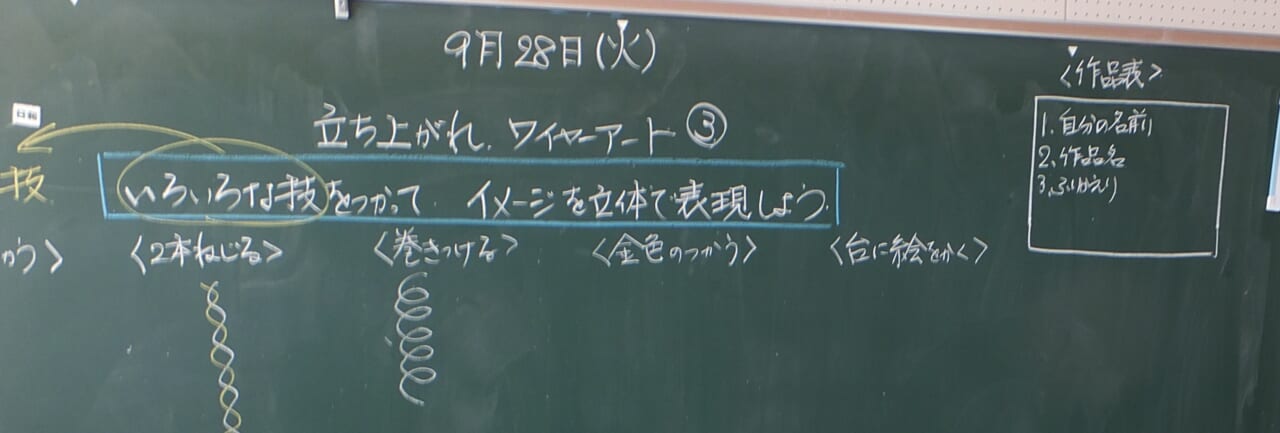 9月28日(火)
立ち上がれ、ワイヤーアート③
いろいろな技をつかって、イメージを立体で表現しよう。
技
かう〉
〈2本ねじる〉
〈巻きつける〉
〈金色のつかう〉
〈台に絵をかく〉
〈作品表〉
1.自分の名前
2.作品名
3.ふりかえり